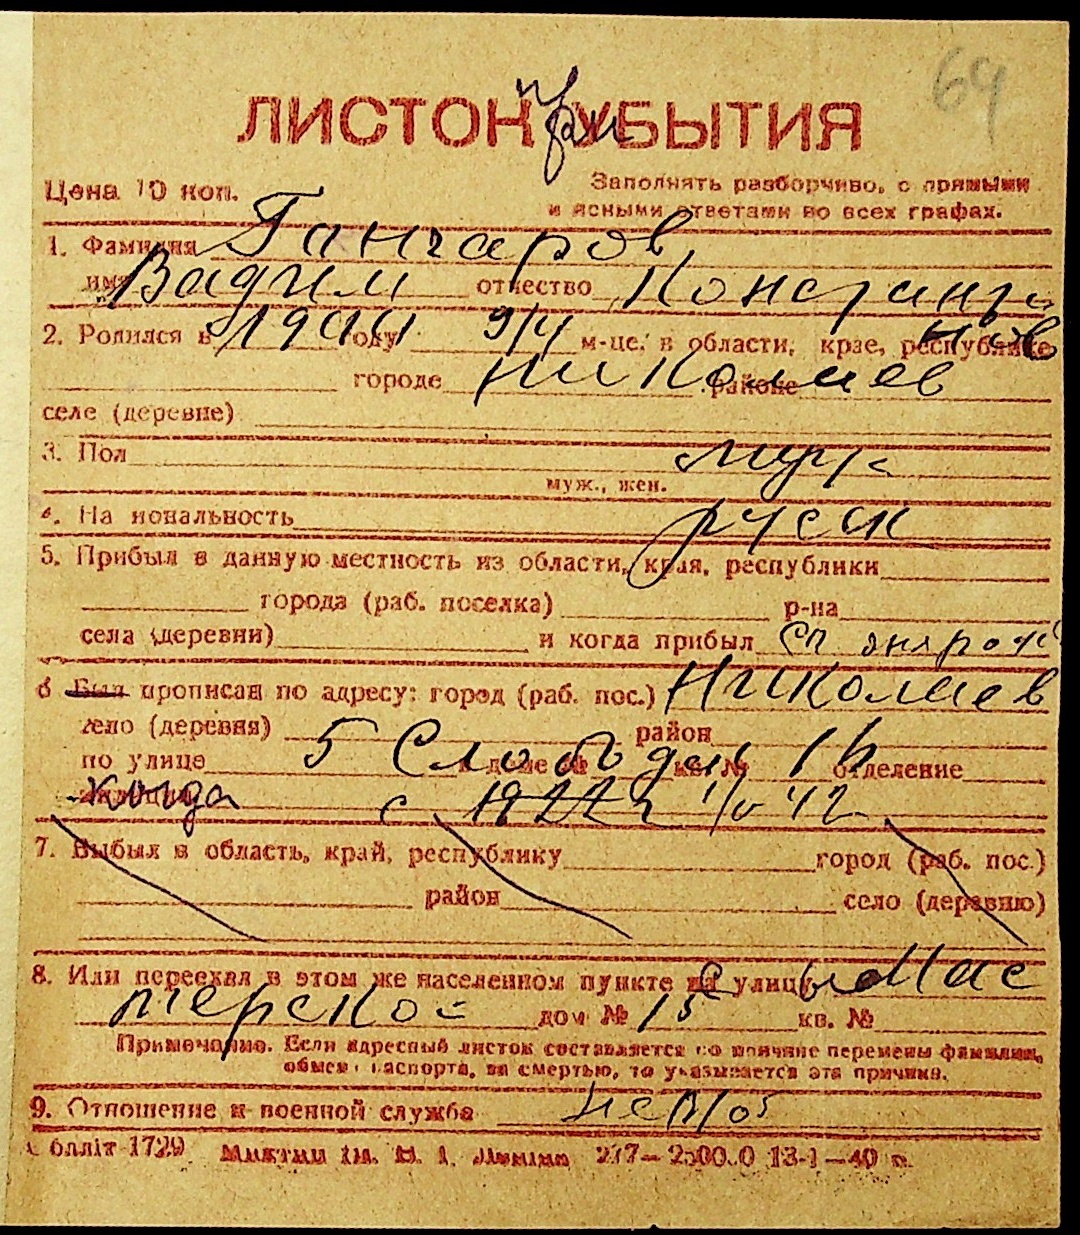 64
ЛИСТОК УБЫТИЯ
при
Цена 10 коп.
Заполнять разборчиво, с прямыми
и ясными ответами во всех графах.
1. Фамилия Ганчаров
имя Вадим отчество Константи
нов
2. Родился в 1944 году 9/4 м-це, в области, крае, республике
городе Николаев районе
селе (деревне)
3. Пол муж
муж., жен.
4. Национальность русск
5. Прибыл в данную местность из области, края, республики
города (раб. поселка) р-на
села (деревни) и когда прибыл сп
6 Был прописан по адресу: город (раб. пос.) Николаев
село (деревня) район
по улице 5 Слободск 16 в доме № кв. № отделение
милиции когда с 1922 г 42
7. Выбыл в область, край, республику город (раб. пос.)
район село (деревню)
8. Или переехал в этом же населенном пункте на улицу с Мас
терской дом № 15 кв. №
Примечание. Если адресный листок составляется по причине перемены фамилии,
обмена паспорта, за смертью, то указывается эта причина.
9. Отношение к военной служба
Облліт 1729 Миктип ім. В. І. Леніна 13-I-40 р.